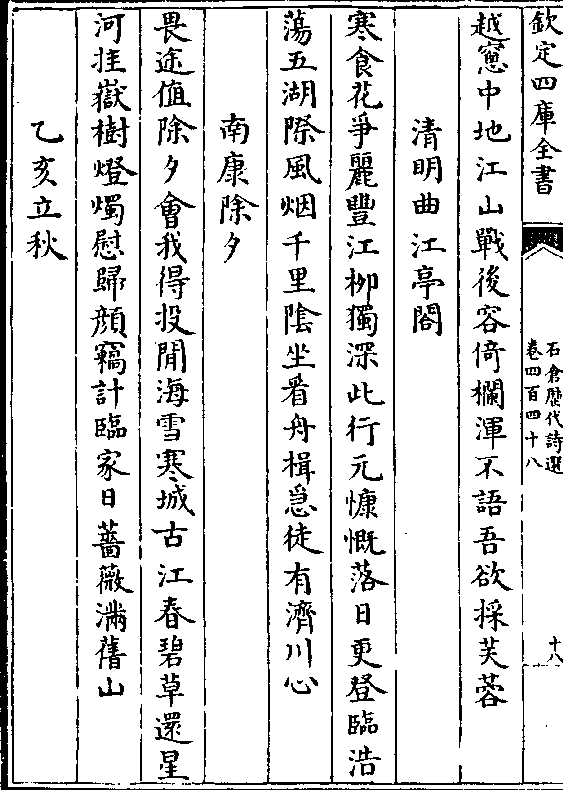 欽定四庫全書
石倉歴代詩選
卷四百四十八
十八
越窻中地江山戰後容倚欄渾不語吾欲採芙蓉
清明曲江亭閣
寒食花爭麗豐江栁獨深此行元慷慨落日更登臨浩
蕩五湖際風烟千里陰坐看舟楫急徒有濟川心
南康除夕
畏途值除夕會我得投閒海雪寒城古江春碧草還星
河挂嶽樹燈燭慰歸顔竊計臨家日薔薇滿舊山
乙亥立秋